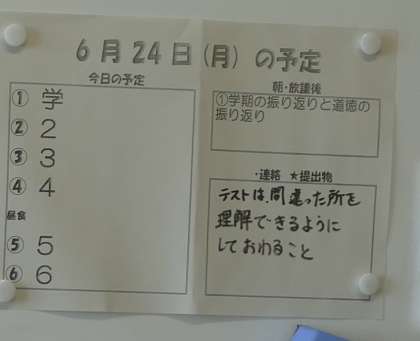 6月24日(月)の予定
今日の予定
① 学
② 2
③ 3
④ 4
昼食
⑤ 5
⑥ 6
朝・放課後
①学期の振り返りと道徳の
振り返り
・連絡 ★提出物
テストは、間違った所を
理解できるように
しておわること